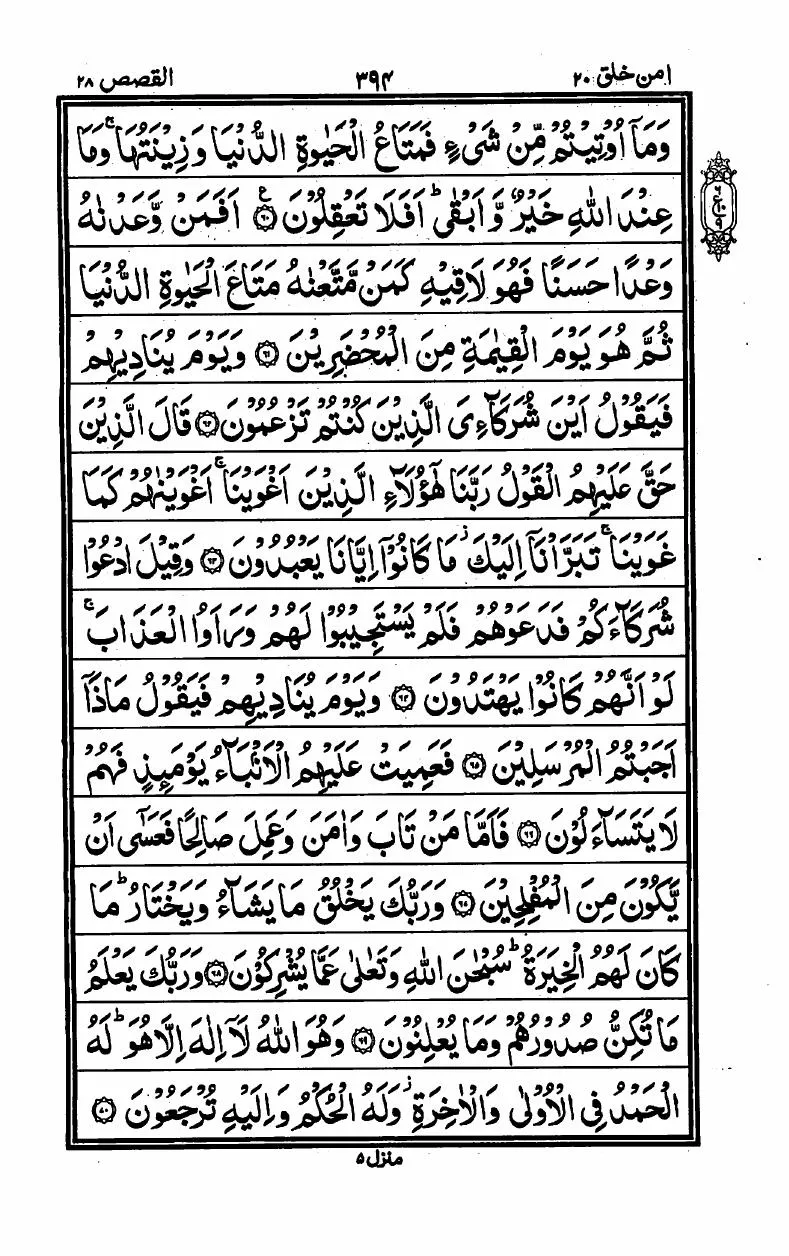 امن خلق ۲۰
۳۹۴
القصص ۲۸
وَمَاۤ اُوْتِیْتُمْ مِّنْ شَیْءٍ فَمَتَاعُ الْحَیٰوةِ الدُّنْیَا وَ زِیْنَتُهَا ۚ وَمَا
عِنْدَ اللّٰهِ خَیْرٌ وَّ اَبْقٰی ؕ اَفَلَا تَعْقِلُوْنَ ﴿۶۰﴾ اَفَمَنْ وَّعَدْنٰهُ
وَعْدًا حَسَنًا فَهُوَ لَاقِیْهِ كَمَنْ مَّتَّعْنٰهُ مَتَاعَ الْحَیٰوةِ الدُّنْیَا
ثُمَّ هُوَ یَوْمَ الْقِیٰمَةِ مِنَ الْمُحْضَرِیْنَ ﴿۶۱﴾ وَیَوْمَ یُنَادِیْهِمْ
فَیَقُوْلُ اَیْنَ شُرَكَآءِیَ الَّذِیْنَ كُنْتُمْ تَزْعُمُوْنَ ﴿۶۲﴾ قَالَ الَّذِیْنَ
حَقَّ عَلَیْهِمُ الْقَوْلُ رَبَّنَا هٰۤؤُلَآءِ الَّذِیْنَ اَغْوَیْنَا ۚ اَغْوَیْنٰهُمْ كَمَا
غَوَیْنَا ۚ تَبَرَّاْنَاۤ اِلَیْكَ ؗ مَا كَانُوْۤا اِیَّانَا یَعْبُدُوْنَ ﴿۶۳﴾ وَقِیْلَ ادْعُوْا
شُرَكَآءَكُمْ فَدَعَوْهُمْ فَلَمْ یَسْتَجِیْبُوْا لَهُمْ وَرَاَوُا الْعَذَابَ ۚ
لَوْ اَنَّهُمْ كَانُوْا یَهْتَدُوْنَ ﴿۶۴﴾ وَیَوْمَ یُنَادِیْهِمْ فَیَقُوْلُ مَاذَاۤ
اَجَبْتُمُ الْمُرْسَلِیْنَ ﴿۶۵﴾ فَعَمِیَتْ عَلَیْهِمُ الْاَنْۢبَآءُ یَوْمَىِٕذٍ فَهُمْ
لَا یَتَسَآءَلُوْنَ ﴿۶۶﴾ فَاَمَّا مَنْ تَابَ وَاٰمَنَ وَعَمِلَ صَالِحًا فَعَسٰۤی اَنْ
یَّكُوْنَ مِنَ الْمُفْلِحِیْنَ ﴿۶۷﴾ وَرَبُّكَ یَخْلُقُ مَا یَشَآءُ وَیَخْتَارُ ؕ مَا
كَانَ لَهُمُ الْخِیَرَةُ ؕ سُبْحٰنَ اللّٰهِ وَتَعٰلٰی عَمَّا یُشْرِكُوْنَ ﴿۶۸﴾ وَرَبُّكَ یَعْلَمُ
مَا تُكِنُّ صُدُوْرُهُمْ وَمَا یُعْلِنُوْنَ ﴿۶۹﴾ وَهُوَ اللّٰهُ لَاۤ اِلٰهَ اِلَّا هُوَ ؕ لَهُ
الْحَمْدُ فِی الْاُوْلٰی وَالْاٰخِرَةِ ؗ وَلَهُ الْحُكْمُ وَاِلَیْهِ تُرْجَعُوْنَ ﴿۷۰﴾
منزل ۵